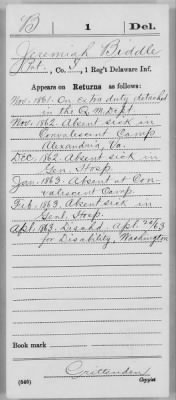 B | 1 | Del.
Jeremiah Biddle
Pvt., Co. , 1 Reg't Delaware Inf.
Appears on Returns as follows:
Nov. 1861. On extra duty detached
in the Q. M. Dept.
Nov. 1862. Absent sick in
Convalescent Camp
Alexandria, Va.
Dec. 1862. Absent sick in
Gen. Hosp.
Jan. 1863. Absent at Con-
valescent Camp.
Feb. 1863. Absent sick in
Genl. Hosp.
Apl. 1863. Discahd. Apl. 25/63
for Disability, Washington
Book mark
Crittenden
(546) Copyist